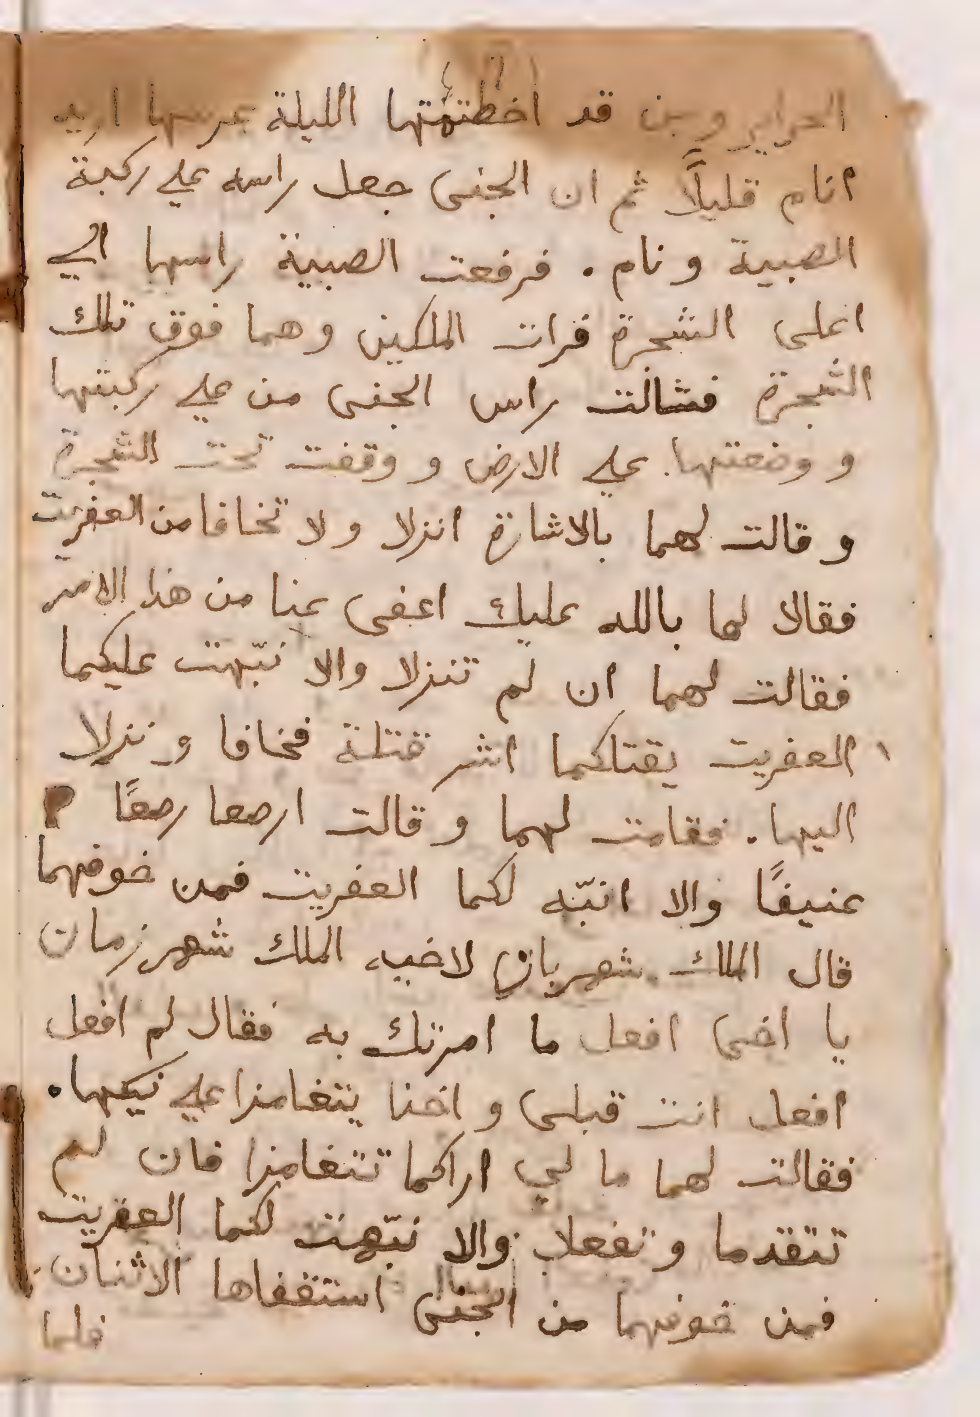 الحراير ومن قد اختطفتها الليلة عرسها اريد
انام قليلًا ثم ان الجنى جعل راسه على ركبة
الصبية ونام . فرفعت الصبية راسها الى
اعلى الشجرة فرات الملكين وهما فوق تلك
الشجرة فشالت راس الجنى من على ركبتها
و وضعتها على الارض و وقفت تحت الشجرة
و قالت لهما بالاشارة انزلا و لا تخافا من العفريت
فقالا لها بالله عليك اعفى عنا من هذا الامر
فقالت لهما ان لم تنزلا والا نبّهت عليكما
العفريت يقتلكما اشر قتلة فخافا و نزلا
اليها . فقامت لهما و قالت ارصعا رصعًا
عنيفًا والا انبّه لكما العفريت فمن خوفهما
قال الملك شهرباز لاخيه الملك شهر زمان
يا اخى افعل ما امرتك به فقال لم افعل
افعل انت قبلى و اخذا يتغامزا على نيكها .
فقالت لهما ما لى اراكما تتغامزا فان لم
تتقدما و تفعلا والا نبّهت لكما العفريت
فمن خوفهما من الجنى الاثنان
فلما